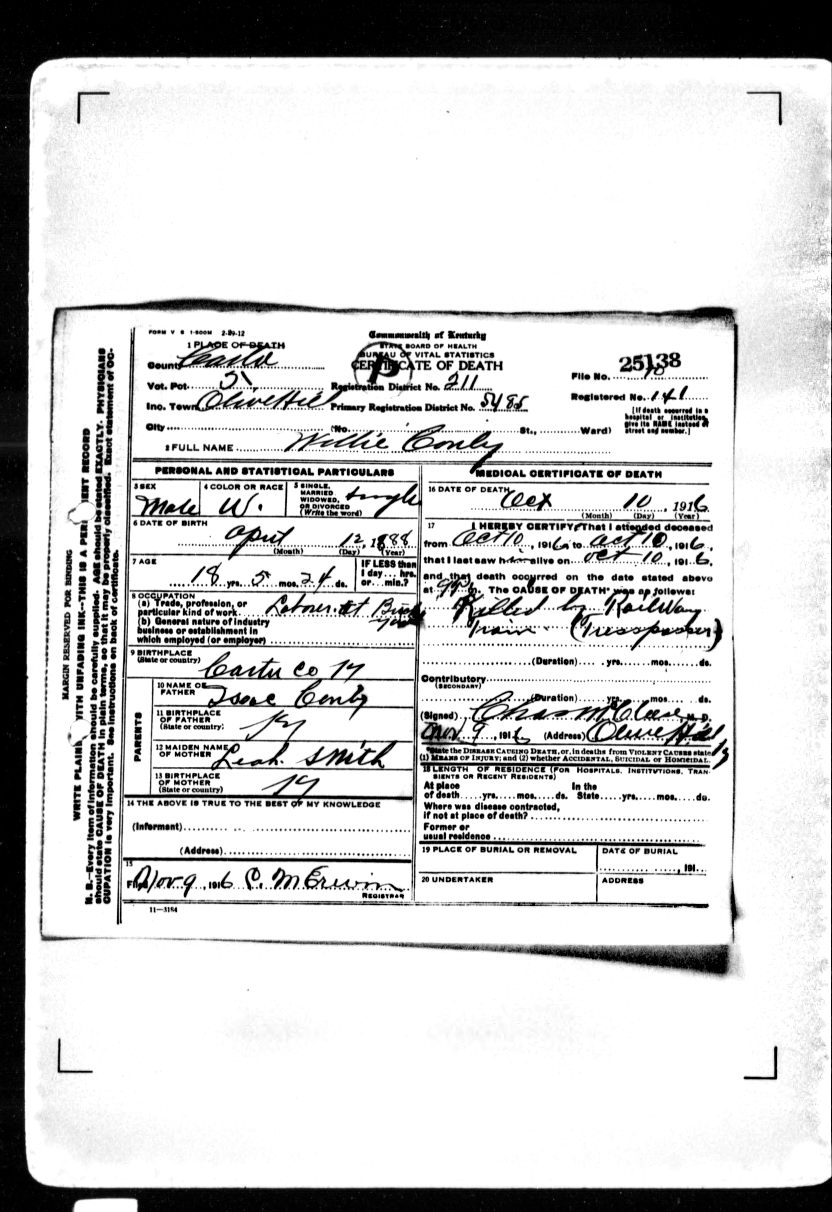 FORM V S 1-500M 2-29-12
Commonwealth of Kentucky
STATE BOARD OF HEALTH
BUREAU OF VITAL STATISTICS
CERTIFICATE OF DEATH
P
1 PLACE OF DEATH
County Carter
Vot. Pct.
Inc. Town Olive Hill
City (No. St., Ward)
Registration District No. 211
Primary Registration District No. 5485
File No. 25138
Registered No. 141
[If death occurred in a hospital or institution, give its NAME instead of street and number.]
2 FULL NAME Willie Conley
PERSONAL AND STATISTICAL PARTICULARS
3 SEX Male
4 COLOR OR RACE W.
5 SINGLE, MARRIED WIDOWED, OR DIVORCED (Write the word) Single
6 DATE OF BIRTH April 12, 1888
(Month) (Day) (Year)
7 AGE 18 yrs. 5 mos. 24 ds.
IF LESS than 1 day... hrs. or... min.?
8 OCCUPATION
(a) Trade, profession, or particular kind of work Laborer at Brick
(b) General nature of industry business or establishment in which employed (or employer)
9 BIRTHPLACE (State or country) Carter Co Ky
PARENTS
10 NAME OF FATHER Isaac Conley
11 BIRTHPLACE OF FATHER (State or country) Ky
12 MAIDEN NAME OF MOTHER Leah Smith
13 BIRTHPLACE OF MOTHER (State or country) Ky
14 THE ABOVE IS TRUE TO THE BEST OF MY KNOWLEDGE
(Informant)
(Address)
15
Filed Nov 9, 1916 C. M Erwin
REGISTRAR
11—3184
MEDICAL CERTIFICATE OF DEATH
16 DATE OF DEATH Oct 10, 1916
(Month) (Day) (Year)
17 I HEREBY CERTIFY, That I attended deceased
from Oct 10, 1916, to Oct 10, 1916,
that I last saw him alive on Oct 10, 1916,
and that death occurred on the date stated above
at m. The CAUSE OF DEATH* was as follows:
Killed by RailWay
Train (Tresspasser)
(Duration) yrs. mos. ds.
Contributory (SECONDARY)
(Duration) yrs. mos. ds.
(Signed) Chas M, M. D.
Nov 9, 1916 (Address) Olive Hill Ky
*State the DISEASE CAUSING DEATH, or, in deaths from VIOLENT CAUSES state (1) MEANS OF INJURY; and (2) whether ACCIDENTAL, SUICIDAL or HOMICIDAL.
18 LENGTH OF RESIDENCE (FOR HOSPITALS, INSTITUTIONS, TRANSIENTS OR RECENT RESIDENTS)
At place of death yrs. mos. ds. In the State yrs. mos. ds.
Where was disease contracted, if not at place of death?
Former or usual residence
19 PLACE OF BURIAL OR REMOVAL
DATE OF BURIAL
, 191
20 UNDERTAKER
ADDRESS
MARGIN RESERVED FOR BINDING
WRITE PLAINLY WITH UNFADING INK—THIS IS A PERMANENT RECORD
N. B.—Every item of information should be carefully supplied. AGE should be stated EXACTLY. PHYSICIANS should state CAUSE OF DEATH in plain terms, so that it may be properly classified. Exact statement of OCCUPATION is very important. See instructions on back of certificate.